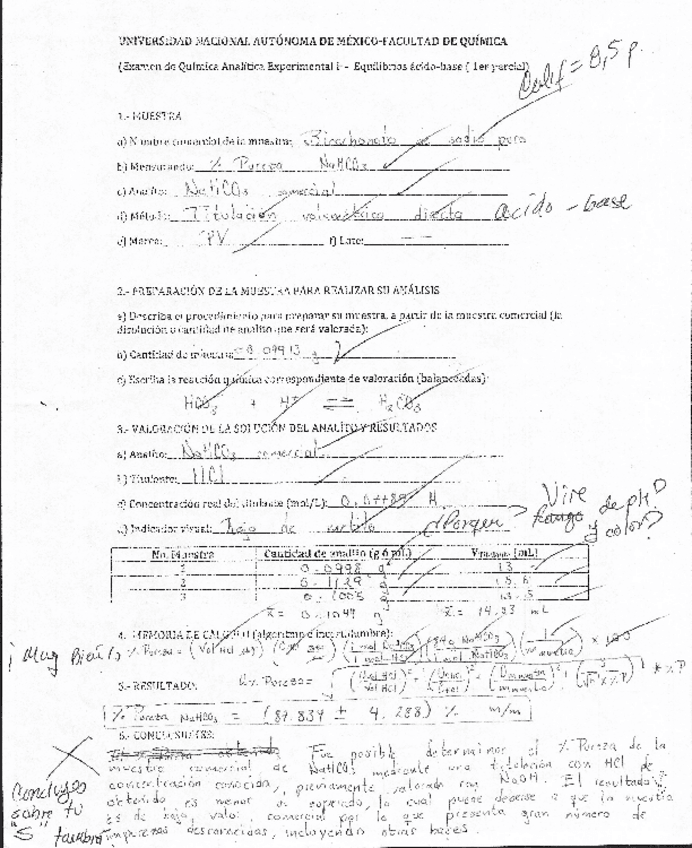 UNIVERSIDAD NACIONAL AUTÓNOMA DE MÉXICO-FACULTAD DE QUÍMICA
Calif = 8,5 p.
(Examen de Química Analítica Experimental I - Equilibrios ácido-base ( 1er parcial)
1.- MUESTRA
a) Nombre comercial de la muestra: Bicarbonato de sodio puro
b) Mensurando: % Pureza NaHCO3
c) Analito: NaHCO3 comercial
d) Método: Titulación volumétrica directa ácido - base
e) Marca: PV f) Lote:
2.- PREPARACIÓN DE LA MUESTRA PARA REALIZAR SU ANÁLISIS
a) Describa el procedimiento para preparar su muestra, a partir de la muestra comercial (la
disolución o cantidad de analito que será valorada):
b) Cantidad de muestra: g
c) Escriba la reacción química correspondiente de valoración (balanceadas):
HCO3 + H+ ⇌ H2CO3
3.- VALORACIÓN DE LA SOLUCIÓN DEL ANALITO Y RESULTADOS
a) Analito: NaHCO3 comercial
b) Titulante: HCl
c) Concentración real del titulante (mol/L): M
d) Indicador visual: Rojo de metilo ¿Porqué? Vire de pH?
Rango y color?
No. Muestra Cantidad de analito (g ó mL) V (mL)
1 0.0998 g 13
2 0.1129 g
3 0.1005 g
x̄ = 0.1044 g x̄ = 14.03 mL
4. MEMORIA DE CÁLCULO (algoritmo e incertidumbre):
¡Muy Bien! % Pureza =
5.- RESULTADO:
% Pureza NaHCO3 = (87.837 ± 4.288) % m/m
6. CONCLUSIONES:
Fue posible determinar el % Pureza de la
muestra comercial de NaHCO3 mediante una titulación con HCl de
concentración conocida, previamente valorada con NaOH. El resultado
obtenido es menor al esperado, lo cual puede deberse a que la muestra
es de bajo valor comercial por lo que presenta gran número de
impurezas desconocidas, incluyendo otras bases.
Concluyes
sobre tu
"S" también